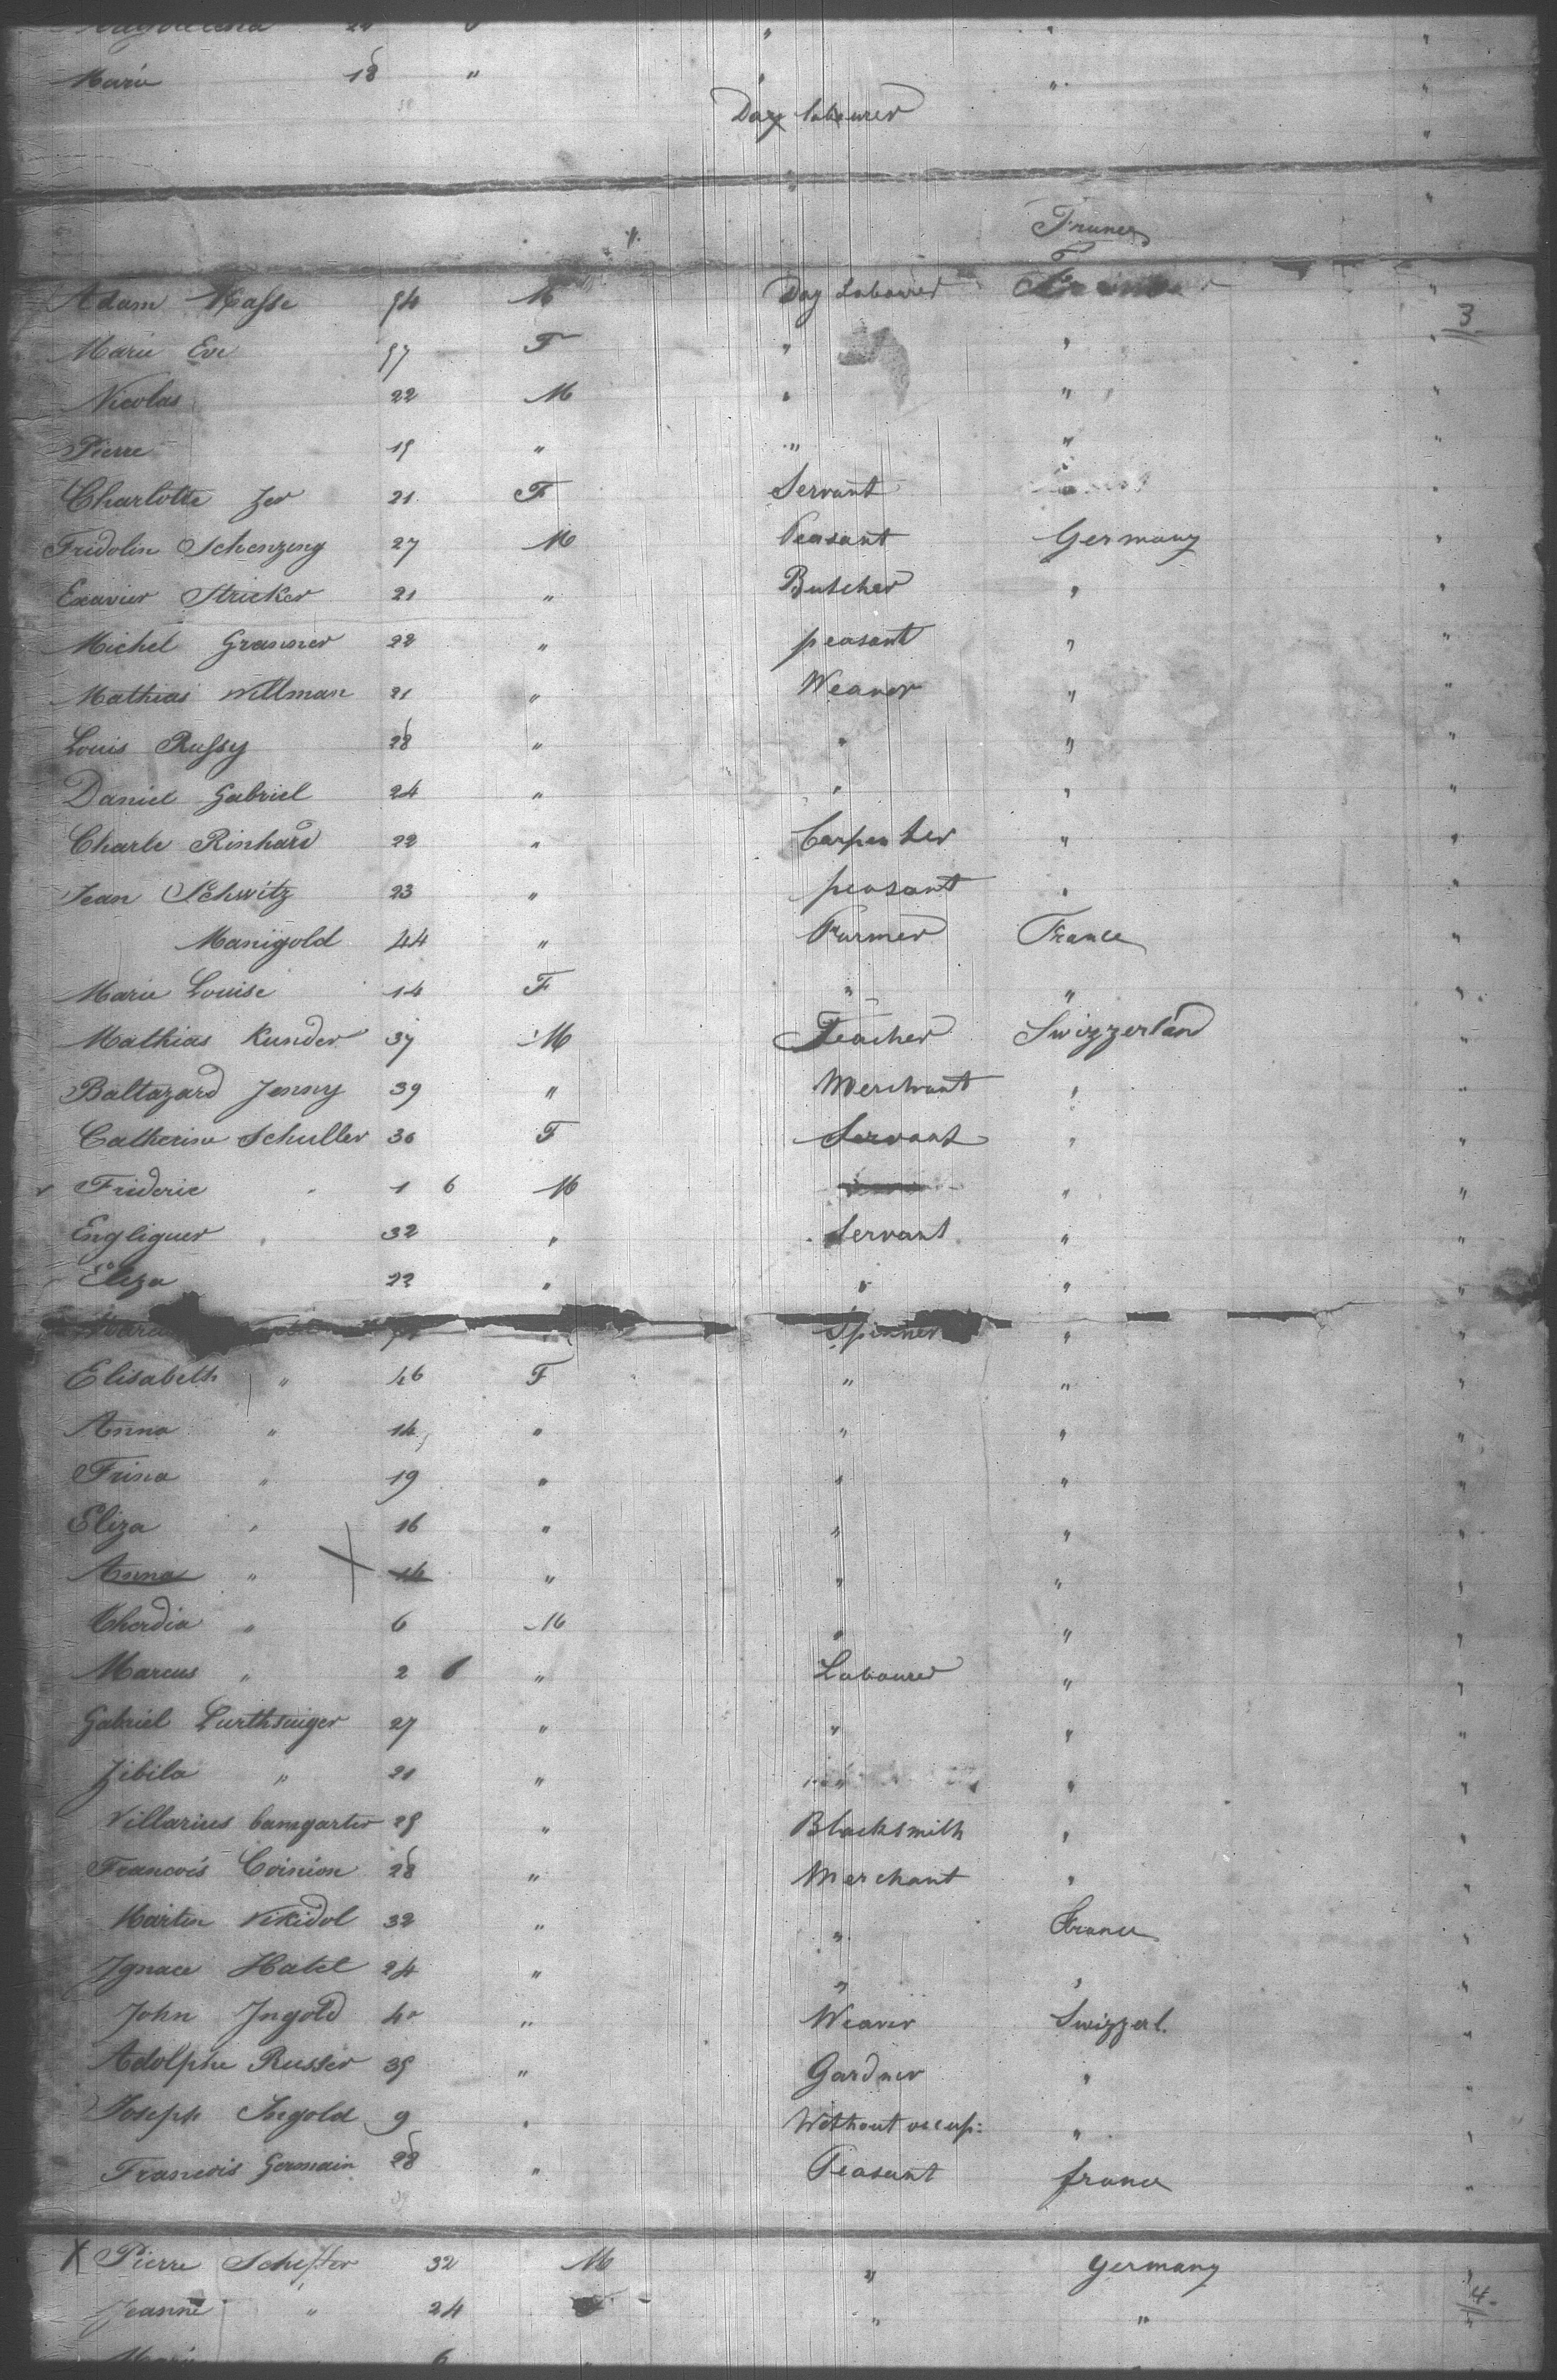 Magdalena 24 "
Marie 18 " " " "
Day labourer "
"
France
Adam Hasse 54 M Day Labourer France "
3
Marie Eve 57 F " " "
Nicolas 22 M " " "
Pierre 15 " " " "
Charlotte Zer 21 F Servant "
Fridolin Schenzing 27 M Peasant Germany "
Exavier Stricker 21 " Butcher " "
Michel Granner 22 " peasant " "
Mathias Willman 21 " Weaver " "
Louis Russy 28 " " " "
Daniel Gabriel 24 " " " "
Charle Rinhard 22 " Carpenter " "
Jean Schwitz 23 " peasant " "
Manigold 44 " Farmer France "
Marie Louise 14 F " " "
Mathias Kunder 37 M Teacher Swizzerland "
Baltazard Jenny 39 " Merchant " "
Catherine Schuller 36 F Servant " "
Frideric " 1 6 M " "
Engliguer " 32 " Servant " "
Eliza 22 " " " "
Spinner " "
Elisabeth " 46 F " " "
Anna " 14 " " " "
Trina " 19 " " " "
Eliza " 16 " " " "
Anna " 14 " " " "
Cherdia " 6 M " " "
Marcus " 2 6 " Labourer " "
Gabriel Lurthsuiger 27 " " " "
Zibila " 21 " " " "
Villarius bamgarter 25 " Blacksmith " "
Francois Coinion 28 " Merchant " "
Martin Vikidol 32 " " France "
Ignace Hatet 24 " " " "
John Ingold 40 " Weaver Swizzerl. "
Adolphe Russer 35 " Gardner " "
Joseph Ingold 9 " Without occup: " "
Francois Germain 28 " Peasant france "
X Pierre Scheffer 32 M " Germany "
4
Jeanne " 24 " " "
Marie 6